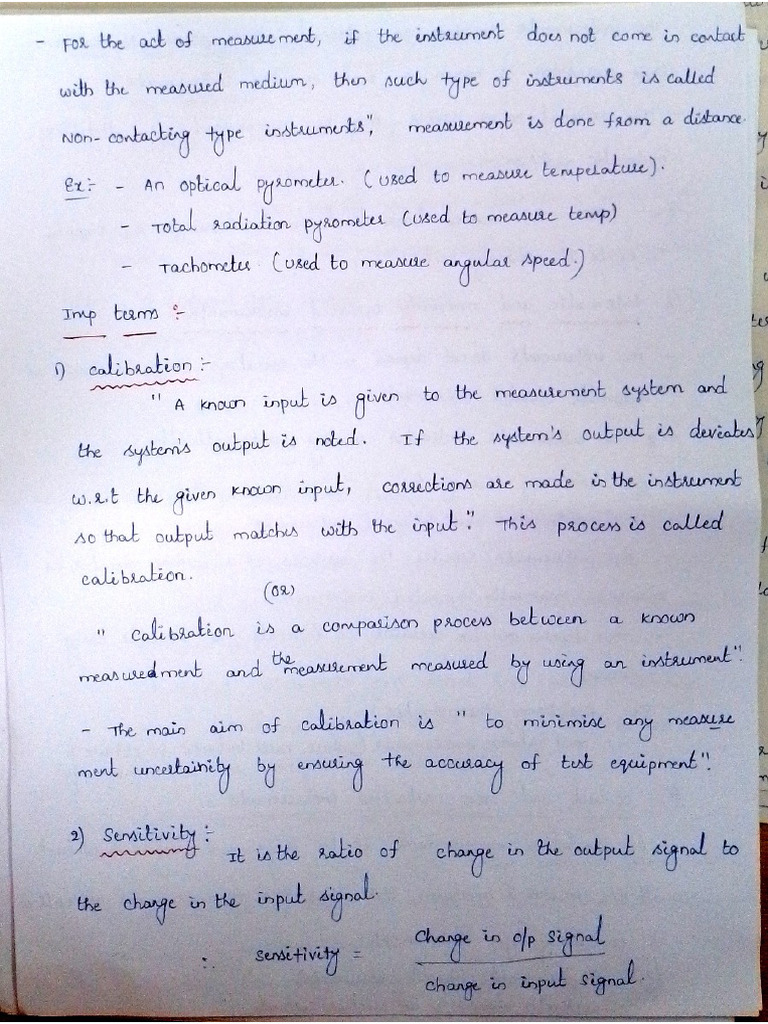 - For the act of measurement, if the instrument does not come in contact
with the measured medium, then such type of instruments is called
Non-contacting type instruments", measurement is done from a distance.
Ex:- - An optical pyrometer. (used to measure temperature).
- Total radiation pyrometer (used to measure temp)
- Tachometer (used to measure angular speed.)
Imp terms :-
1) calibration :-
" A known input is given to the measurement system and
the system's output is noted. If the system's output is deviates
w.r.t the given known input, corrections are made in the instrument
so that output matches with the input". This process is called
calibration.
(or)
" calibration is a comparison process between a known
measuredment and the measurement measured by using an instrument".
- The main aim of calibration is " to minimise any measure
ment uncertainity by ensuring the accuracy of test equipment".
2) Sensitivity :-
It is the ratio of change in the output signal to
the change in the input signal.
∴ sensitivity = change in o/p signal
change in input signal.